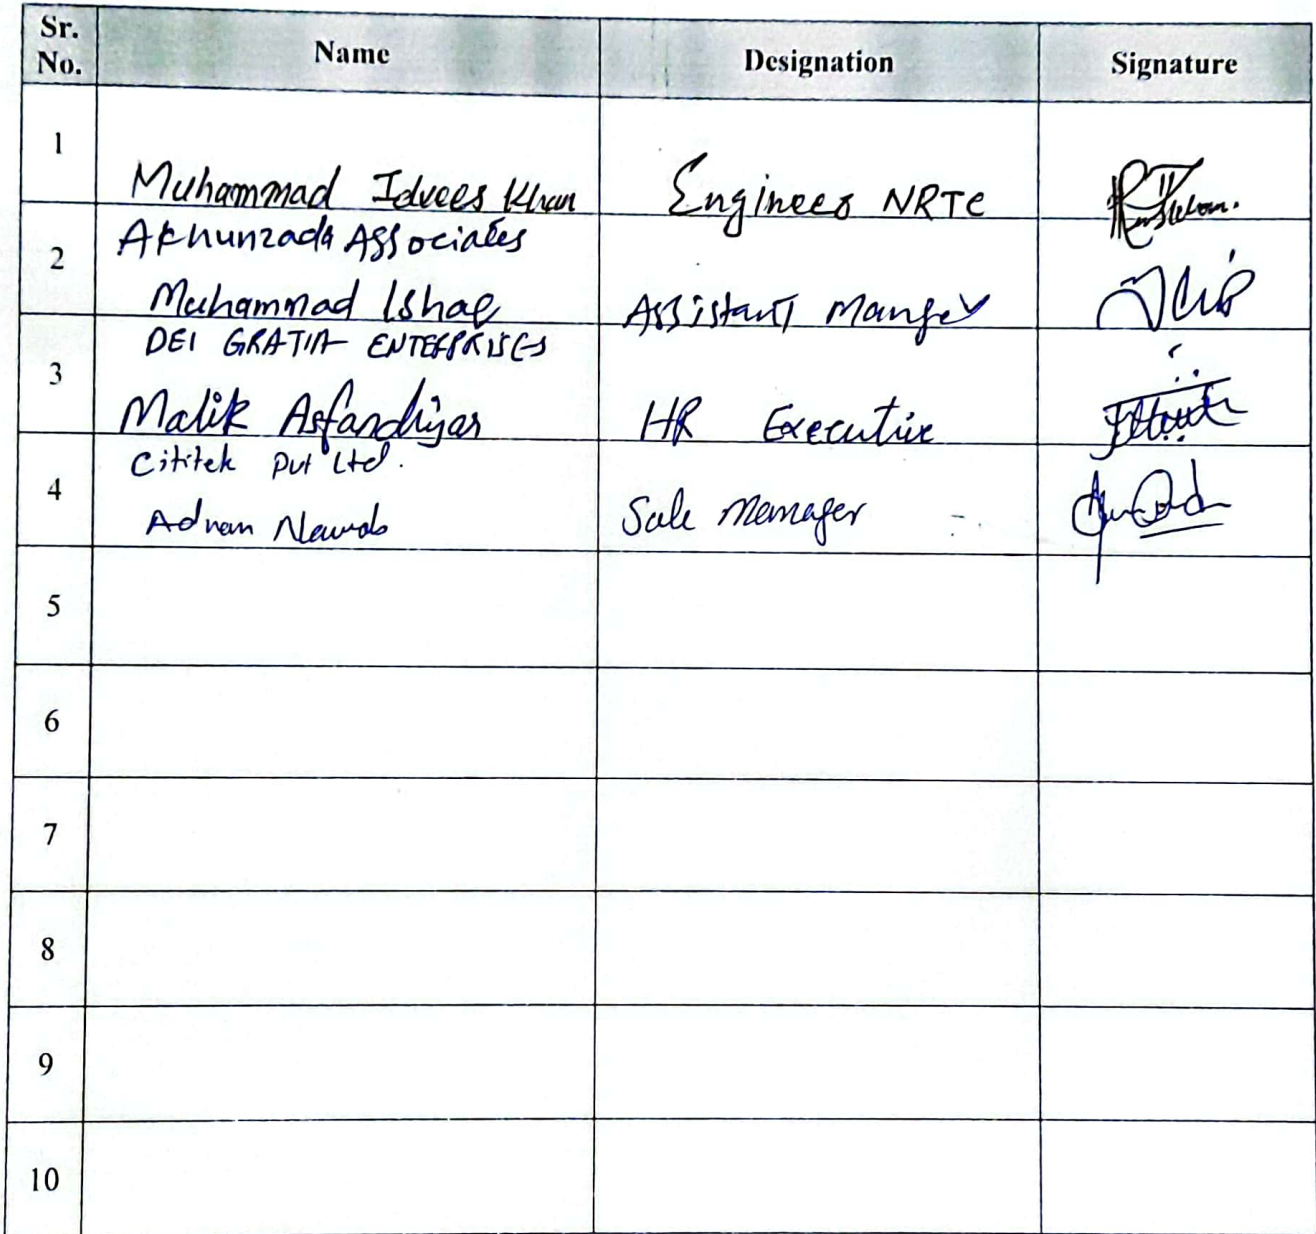 Sr. No. Name Designation Signature
1 Muhammad Idrees Khan Engineer NRTC
2 Akhunzada Associates
Muhammad Ishaq Assistant Manger
3 DEI GRATIA ENTERPRISES
Malik Asfandiyar HR Executive
4 Cititek Pvt Ltd.
Adnan Nawab Sale Manager
5
6
7
8
9
10